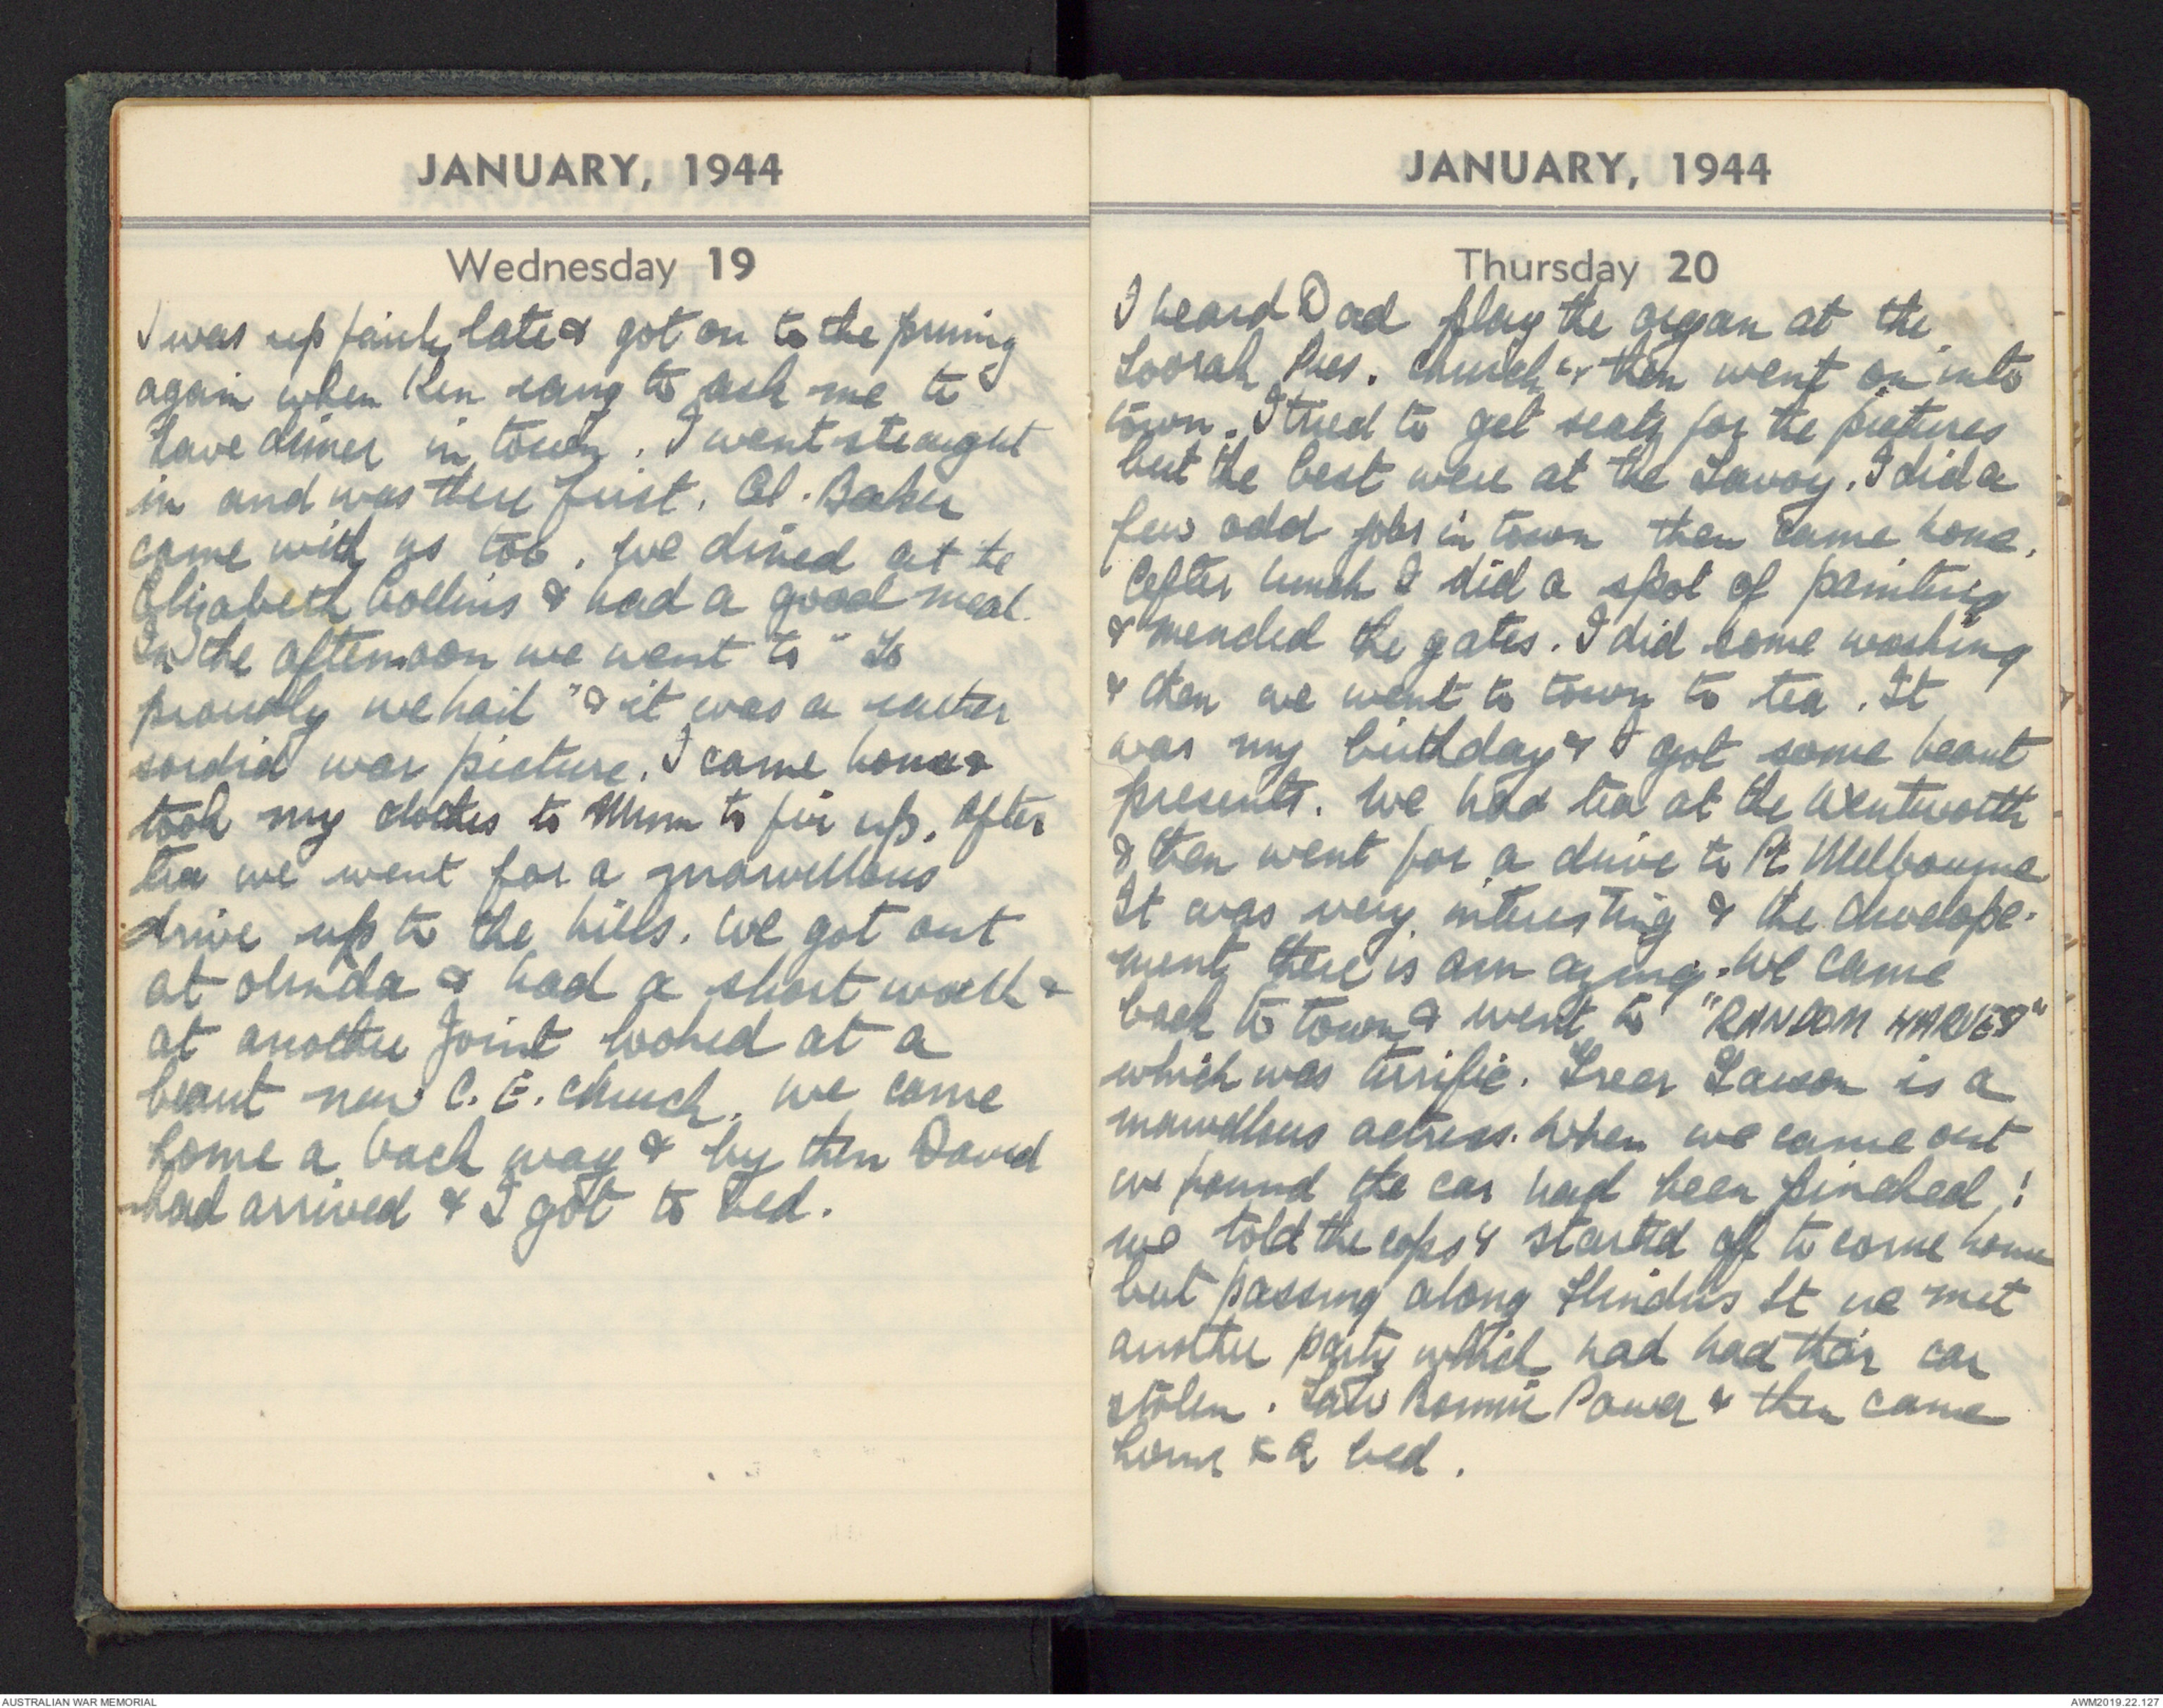 JANUARY, 1944
Wednesday 19
I was up fairly late & got on to the pruning
again when Ken rang to ask me to
have dinner in town. I went straight
in and was there first. Col. Baker
came with us too. We dined at the
Elizabeth Collins & had a good meal.
In the afternoon we went to "So
proudly we hail" & it was a rather
sordid war picture. I came home &
took my clothes to Mum to fix up. After
tea we went for a marvellous
drive up to the hills. We got out
at Olinda & had a short walk &
at another joint looked at a
beaut new C. E. church. We came
home a back way & by then David
had arrived & I got to bed.
JANUARY, 1944
Thursday 20
I heard Dad play the organ at the
Toorak Pres. Church & then went on into
town. I tried to get seats for the pictures
but the best were at the Savoy. I did a
few odd jobs in town then came home.
After lunch I did a spot of painting
& mended the gates. I did some washing
& then we went to town to tea. It
was my birthday & I got some beaut
presents. We had tea at the Wentworth
& then went for a drive to Pt Melbourne
It was very interesting & the develope-
ment there is amazing. We came
back to town & went to "RANDOM HARVEST"
which was terrific. Greer Garson is a
marvellous actress. When we came out
we found the car had been pinched!
we told the cops & started off to come home
but passing along Flinders St we met
another party which had had their car
stolen. Saw Bonnie Power & then came
home & a bed.
AUSTRALIAN WAR MEMORIAL
AWM2019.22.127